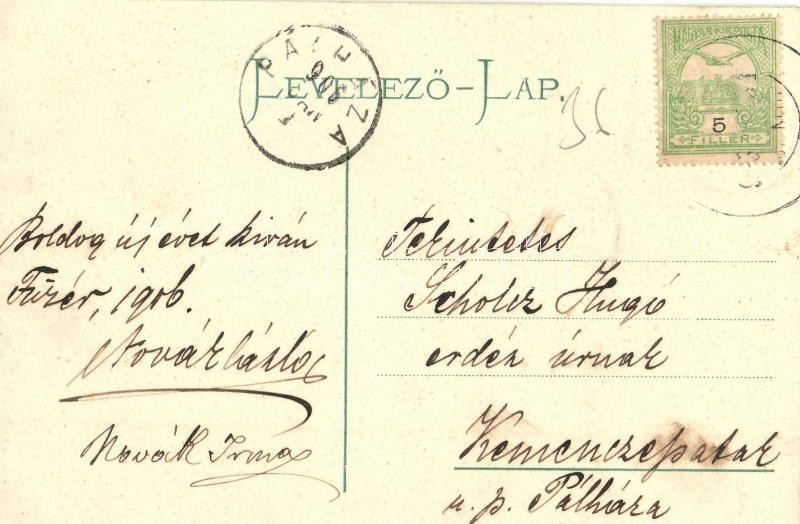 LEVELEZŐ-LAP.
PÁLHÁZA
906
36
MAGYAR KIR. POSTA
5
FILLER
Boldog új évet kíván
Füzér, 1906.
Novák László
Novák Irma
Tekintetes
Scholcz Hugó
erdész úrnak
Kemenczepatak
u. p. Pálháza